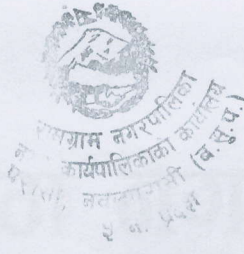 रामग्राम नगरपालिका
नगर कार्यपालिकाको कार्यालय
परासी, नवलपरासी (ब.सु.प.)
५ नं. प्रदेश